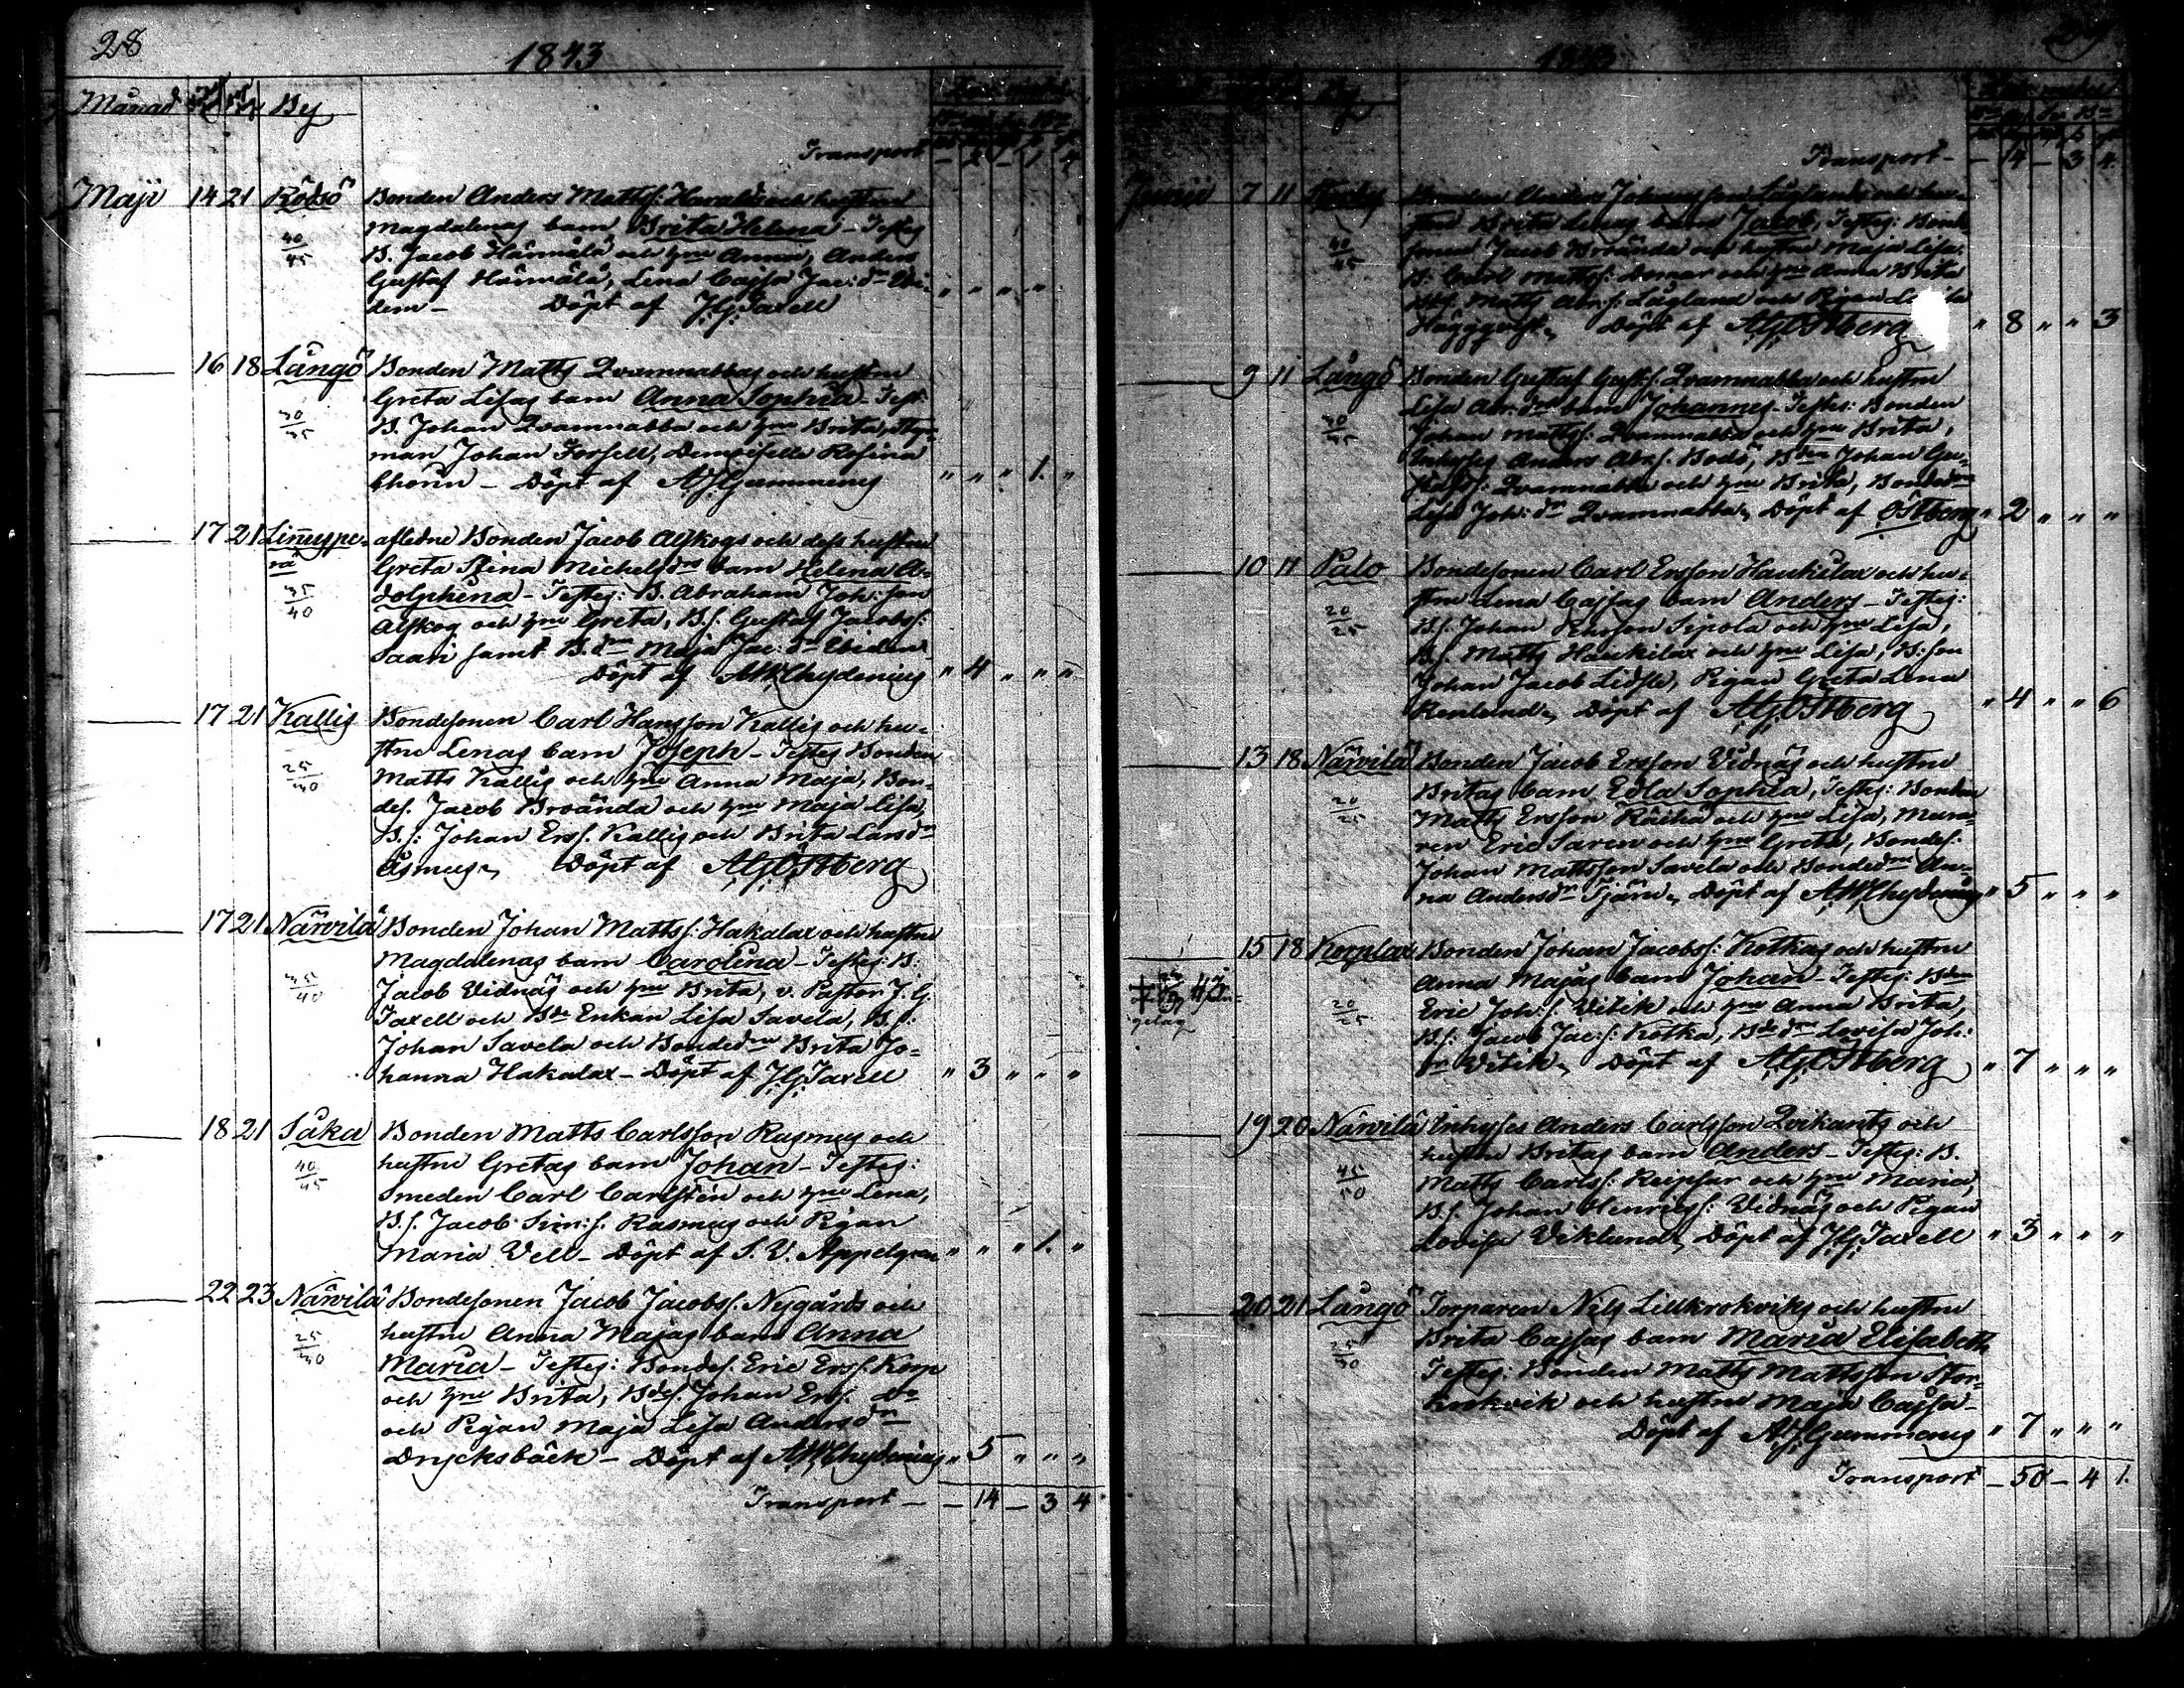 28
1843
Månad By
Transport - 2 - 1 4
Maji 14 21 Rödsö Bonden Anders Mattss: Haralds och hustrun
Magdalenas barn Brita Helena - Testes
40/45 B. Jacob Härmälä och hne Anna, Anders
Gustaf Härmälä, Lena Cajsa Jac: dr Ibi-
dem - Döpt af J.G. Taxell " " " "
16 18 Långö Bonden Matts Qvarnnabbas och hustrun
Greta Lisas barn Anna Sophia - Test:
30/35 B. Johan Qvarnnabba och hne Brita,
man Johan Forsell, Demoiselle Rosina
Chorin - Döpt af A.J. Gummerus " " " 1. "
17 21 Linnype- aflidne Bonden Jacob Alskogs och dess hustru
rä Greta Stina Michelsdrs barn Helena A-
35/40 dolphina - Testes: B. Abraham Joh: son
Alskog och hne Greta, B.s. Gustaf Jacobss:
Saari samt B.dn Maja Jac: dr Ibidem
Döpt af A.W. Chydenius " 4 " " "
17 21 Kallis Bondesonen Carl Hansson Kallis och hu-
strus Lenas barn Joseph - Testes Bonden
25/30 Matts Kallis och hne Anna Maja, Bon-
des. Jacob Broända och hne Maja Lisa,
B.s: Johan Erss. Kallis och Brita Larsdr
Åsmus, Döpt af A.G. Östberg
17 21 Närvilä Bonden Johan Mattss: Hakalax och hustrun
Magdalenas barn Carolina - Testes: B.
35/40 Jacob Vidnäs och hne Brita, v. Pastor J. G.
Taxell och Bde Enkan Lisa Savela, B.s:
Johan Savela och Bondedrn Brita Jo-
hanna Hakalax - Döpt af J.G. Taxell " 3 " " "
18 21 Såka Bonden Matts Carlsson Rasmus och
hustrus Gretas barn Johan - Testes:
40/45 Smeden Carl Carlstén och hne Lena,
B.s. Jacob Sim: s. Rasmus och Pigan
Maria Vell - Döpt af S. V. Appelgren " " " 1. "
22 23 Närvilä Bondesonen Jacob Jacobss. Nygårds och
hustrus Anna Majas barn Anna
25/30 Maria - Testes: Bondes. Eric Erss. Korp
och hne Brita, Bdes. Johan Erss. do
och Pigan Maja Lisa Andersdr
Drycksbäck - Döpt af A.W. Chydenius " 5 " " "
Transport - - 14 - 3 4
29
1843
By
Transport - - 14 - 3 4
Junii 7 11 Bonden Anders Johansson Låglands och hu-
strus Brita Lenas barn Jacob, Testes: Bonde-
40/45 sonen Jacob Broända och hustrun Maja Lisa
B. Carl Mattss: Domar och hne Anna Brita
Matts Abr: s: Lågland och Pigan
Häggqvist, Döpt af A.G. Östberg " 8 " " 3
9 11 Långö Bonden Gustaf Gust.s: Qvarnnabba och hustrun
Lisa Abr: drs barn Johannes - Testes: Bonden
30/35 Johan Mattss: Qvarnnabba och hne Brita,
Inhyses Anders Abr.s. Bodö, Bden Johan Gu-
stafss: Qvarnnabba och hne Brita, Bondedrn
Lisa Joh: dr Qvarnnabba, Döpt af Östberg " 2 " " "
10 11 Palo Bondesonen Carl Ersson Haukilax och hu-
strus Lena Cajsas barn Anders - Testes:
20/25 B.s. Johan Ehrsson Sipola och hne Lisa,
B.s. Matts Haukilax och hne Lisa, B:son
Johan Jacob Lidsle, Pigan Greta Lena
Renlund, Döpt af A.G. Östberg " 4 " " 6
13 18 Närvilä Bonden Jacob Ersson Vidnäs och hustrun
Britas barn Edla Sophia, Testes: Bonden
20/25 Matts Ersson Räihä och hne Lisa, Mura-
ren Eric Saren och hne Greta, Bondes:
Johan Mattsson Savela och Bondedrn An-
na Andersdr Tjäru, Döpt af A.W. Chydenius " 5 " " "
15 18 Korplax Bonden Johan Jacobss: Kotkas och hustrun
Anna Majas barn Johan - Testes: Bden
20/25 Eric Joh: s. Vitick och hne Anna Brita,
B.s: Jacob Jac: s: Kotka, Bdedrn Lovisa Joh:
dr Vitick, Döpt af A.G. Östberg " 7 " " "
19 20 Närvilä Inhyses Anders Carlsson Qvikants och
hustrus Britas barn Anders - Testes: B.
45/50 Matts Carlss: Reipsar och hne Maria,
B.s. Johan Henrikss: Vidnäs och Pigan
Lovisa Viklund, Döpt af J.G. Taxell " 3 " " "
20 21 Långö Torparen Nils Lillkrokviks och hustrun
Brita Cajsas barn Maria Elisabeth
25/30 Testes: Bonden Matts Mattsson Stor-
krokvik och hustrun Maja Cajsa -
Döpt af A.J. Gummerus " 7 " " "
Transport - 50 - 4 1.